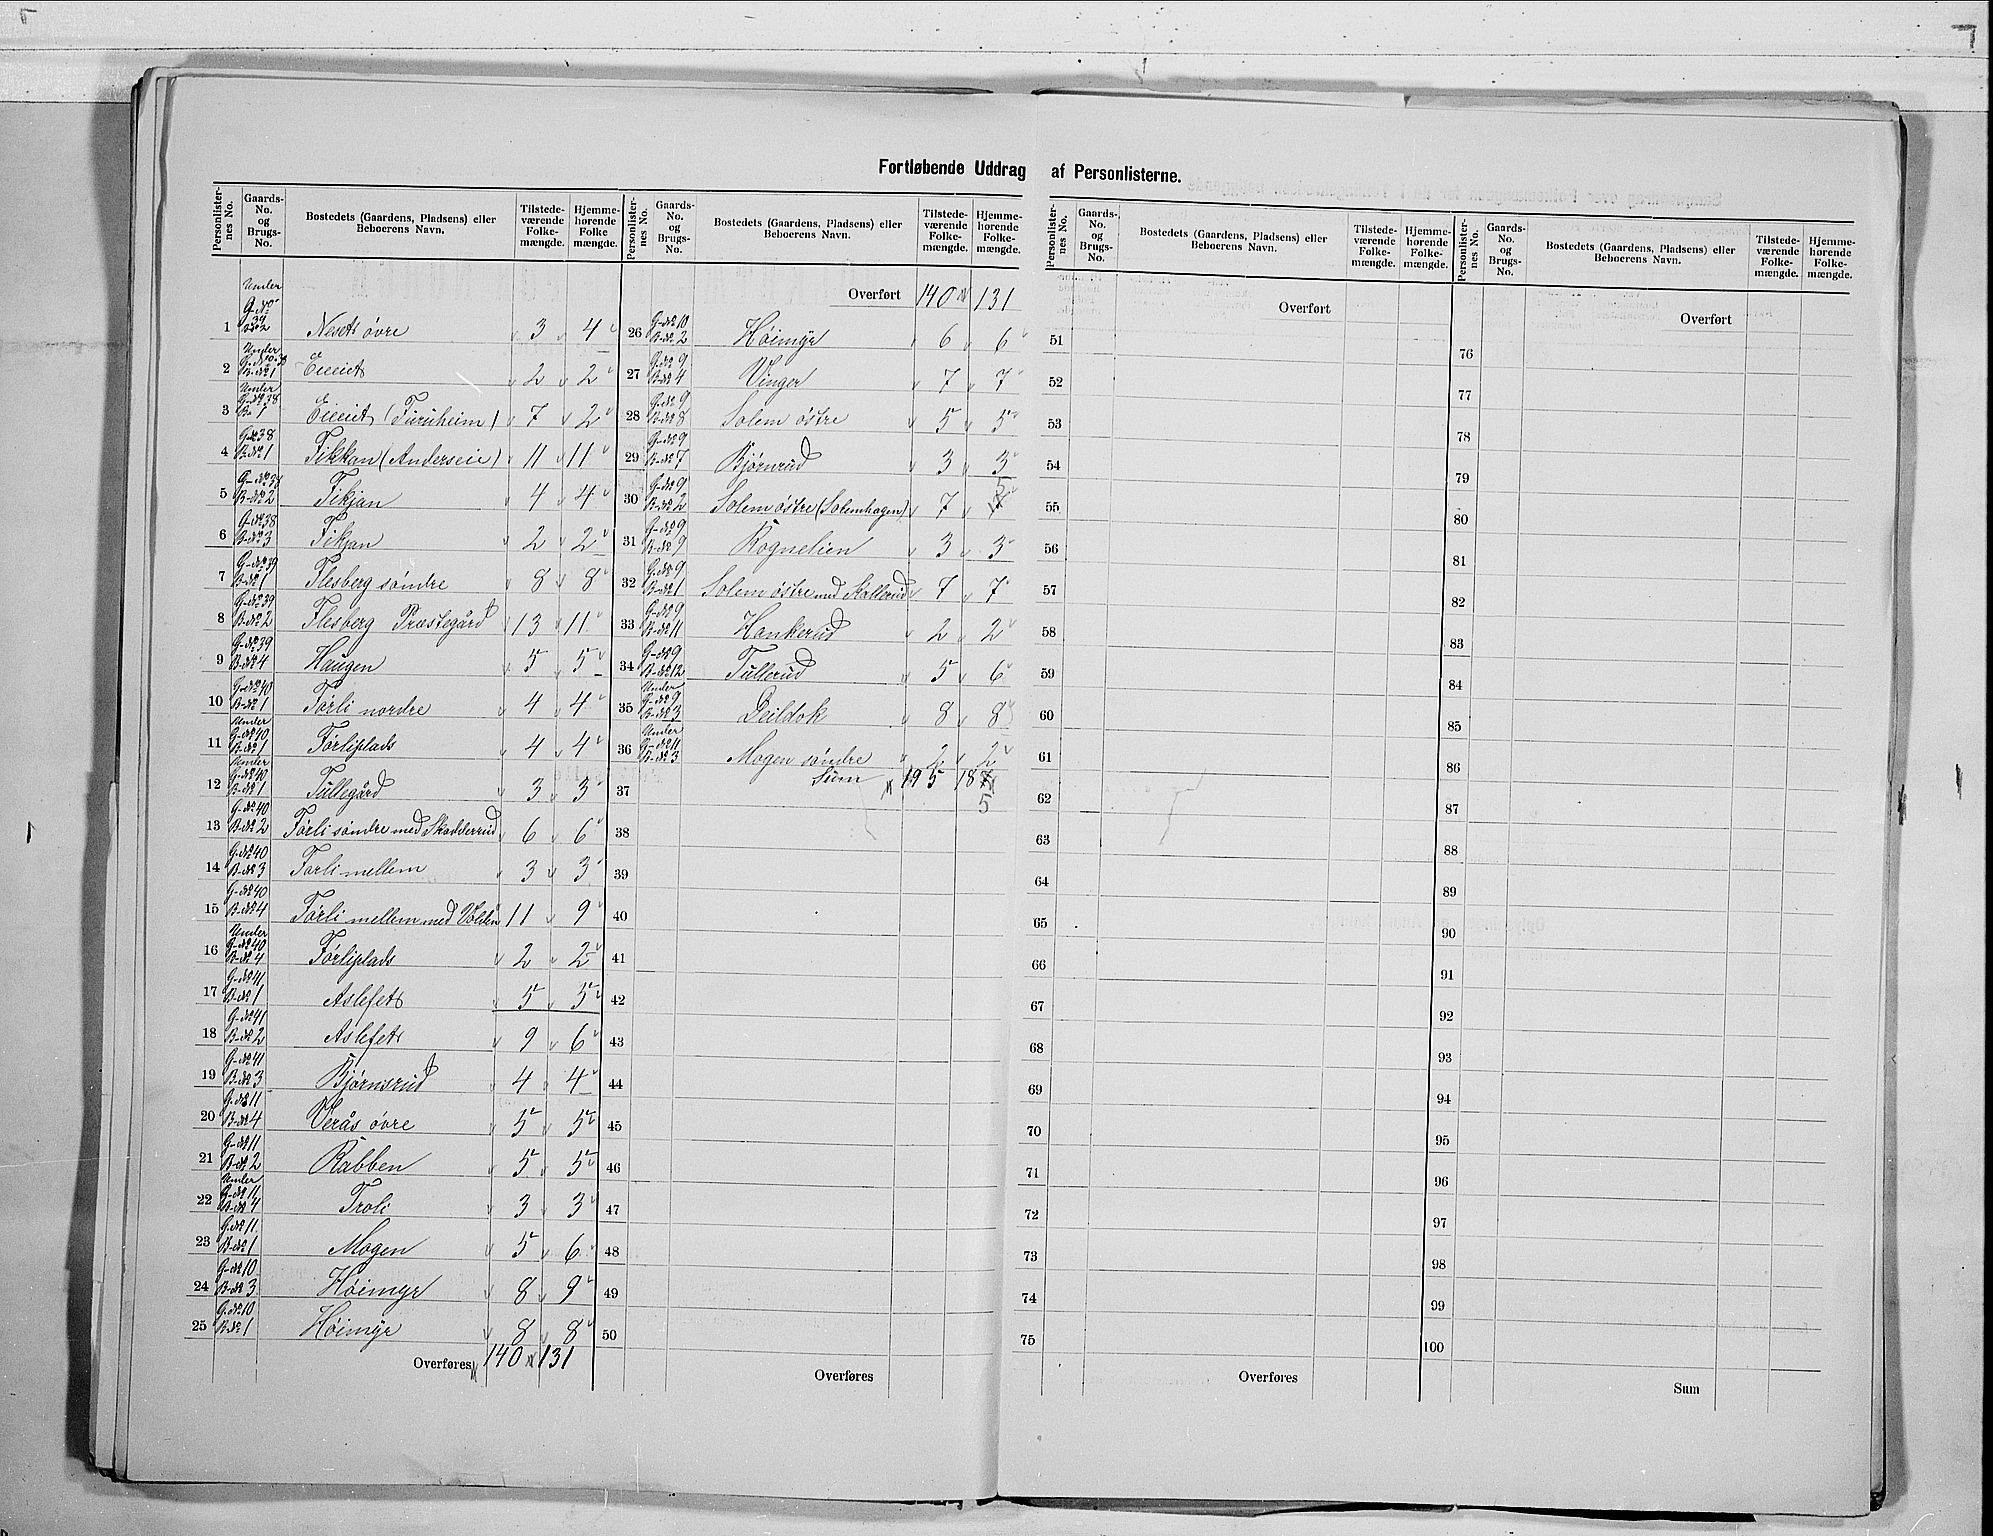 Fortløbende Uddrag af Personlisterne.
Personlister-nes No. Gaards-No. og Brugs-No. Bostedets (Gaardens, Pladsens) eller Beboerens Navn. Tilstede-værende Folke-mængde. Hjemme-hørende Folke mængde.
1 Under G-No 39 B-No 2 Neset øvre 3 4
2 Under B-No 1 Eieiet 2 2
3 Under G-No 38 B-No 1 Eieiet (Furuheim) 7 2
4 G-No 38 B-No 1 Fikkan (Anderseie) 11 11
5 G-No 38 B-No 2 Fikjan 4 4
6 G-No 38 B-No 3 Fikjan 2 2
7 G-No 39 B-No 1 Flesberg søndre 8 8
8 G-No 39 B-No 2 Flesberg Præstegård 13 11
9 G-No 39 B-No 4 Haugen 5 5
10 G-No 40 B-No 1 Førli nordre 4 4
11 Under G-No 40 B-No 1 Førliplads 4 4
12 Under G-No 40 B-No 1 Tullegård 3 3
13 G-No 40 B-No 2 Førli søndre med Skadderud 6 6
14 G-No 40 B-No 3 Førli mellem 3 3
15 G-No 40 B-No 4 Førli mellem med Volden 11 9
16 Under G-No 40 B-No 4 Førliplads 2 2
17 G-No 41 B-No 1 Aslefet 5 5
18 G-No 41 B-No 2 Aslefet 9 6
19 G-No 41 B-No 3 Bjørnsrud 4 4
20 G-No 11 B-No 4 Verås øvre 5 5
21 G-No 11 B-No 2 Rabben 5 5
22 Under G-No 11 B-No 4 Troli 3 3
23 G-No 11 B-No 1 Mogen 5 6
24 G-No 10 B-No 3 Høimyr 8 9
25 G-No 10 B-No 1 Høimyr 8 8
Overføres 140 131
Personlister-nes No. Gaards-No. og Brugs-No. Bostedets (Gaardens, Pladsens) eller Beboerens Navn. Tilstede-værende Folke-mængde. Hjemme-hørende Folke-mængde.
Overført 140 131
26 G-No 10 B-No 2 Høimyr 6 6
27 G-No 9 B-No 4 Vinger 7 7
28 G-No 9 B-No 8 Solem østre 5 5
29 G-No 9 B-No 7 Bjørnrud 3 3
30 G-No 9 B-No 2 Solem østre (Solemhagen) 7 7 5
31 G-No 9 B-No 9 Rognelien 3 3
32 G-No 9 B-No 1 Solem østre med Kallerud 7 7
33 G-No 9 B-No 11 Hankerud 2 2
34 G-No 9 B-No 12 Tullerud 5 6
35 Under G-No 9 B-No 3 Deildok 8 8
36 Under G-No 11 B-No 3 Mogen søndre 2 2
37 Sum 195 187 5
38
39
40
41
42
43
44
45
46
47
48
49
50
Overføres
Personlister-nes No. Gaards-No. og Brugs-No. Bostedets (Gaardens, Pladsens) eller Beboerens Navn. Tilstede-værende Folke-mængde. Hjemme-hørende Folke-mængde.
Overført
51
52
53
54
55
56
57
58
59
60
61
62
63
64
65
66
67
68
69
70
71
72
73
74
75
Overføres
Personlister-nes No. Gaards-No. og Brugs-No. Bostedets (Gaardens, Pladsens) eller Beboerens Navn. Tilstede-værende Folke-mængde. Hjemme-hørende Folke-mængde.
Overført
76
77
78
79
80
81
82
83
84
85
86
87
88
89
90
91
92
93
94
95
96
97
98
99
100
Sum